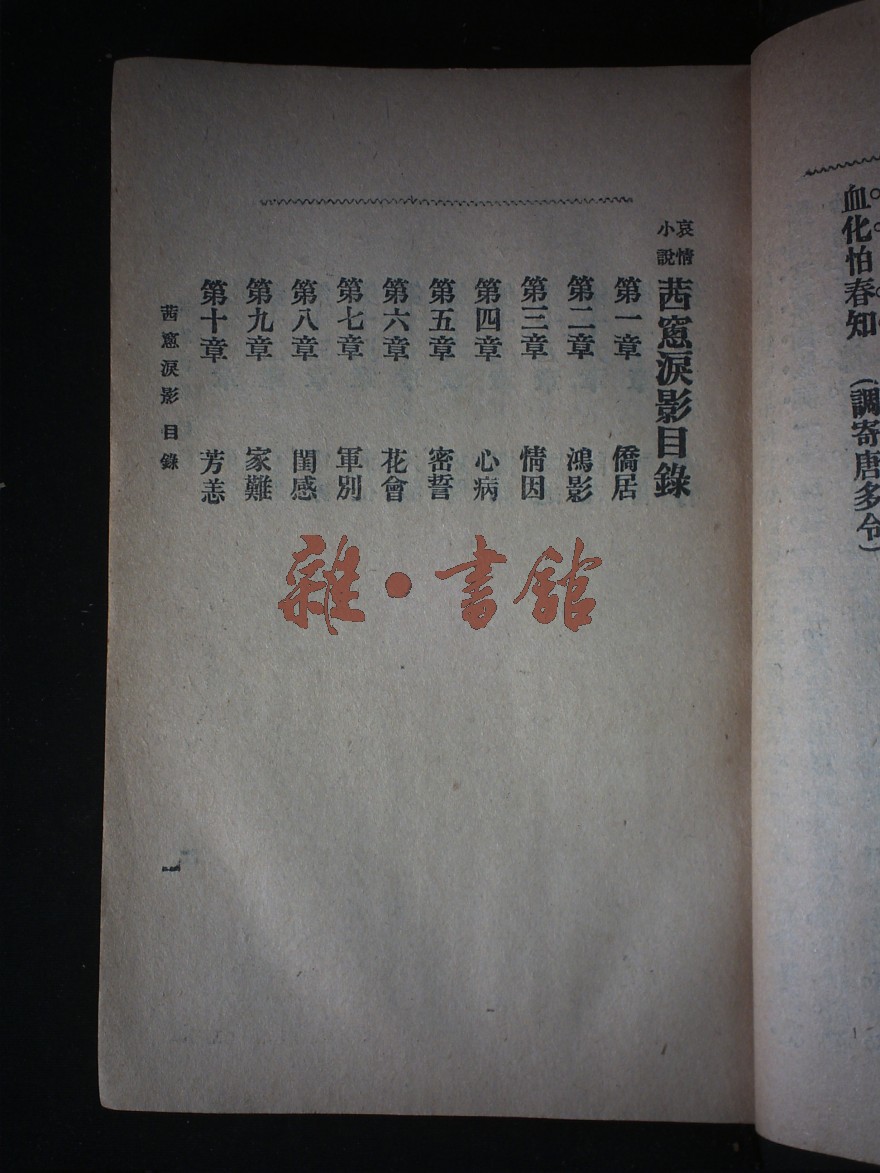 血化怕春知　（調寄唐多令）
哀情小說 茜窻淚影目錄
第一章　僑居
第二章　鴻影
第三章　情因
第四章　心病
第五章　密誓
第六章　花會
第七章　軍別
第八章　閨感
第九章　家難
第十章　芳恙
茜窻淚影 目錄
一
雜·書館